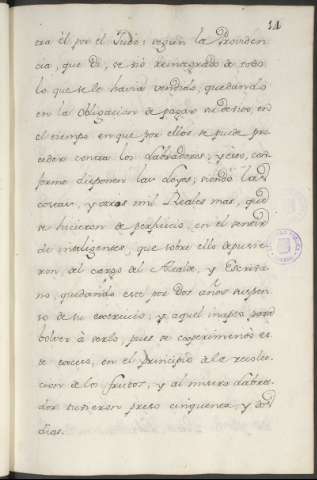 11
tra él por el Judº; segun la Providen
cia, que dí, se vió reintegrado de todo
lo que se le havia vendido, quedando
en la obligacion de pagar su devito, en
el tiempo en que por ellos se puede pro
ceder contra los Labradores, y esto, con
forme disponen las Leyes; siendo las
costas, y otros mil Reales mas, que
se hicieron de perjuicio, en el sentir
de inteligentes, que sobre ello depusie
ron al cargo del Alcalde, y Escriva
no, quedando este por dos años suspen
so de su exercicio, y aquel inapto para
bolver à serlo, pues se experimentó es
te exceso, en el principio de la recolec
cion de los frutos, y al misero Labra
dor tuvieron preso cinquenta, y dos
dias.